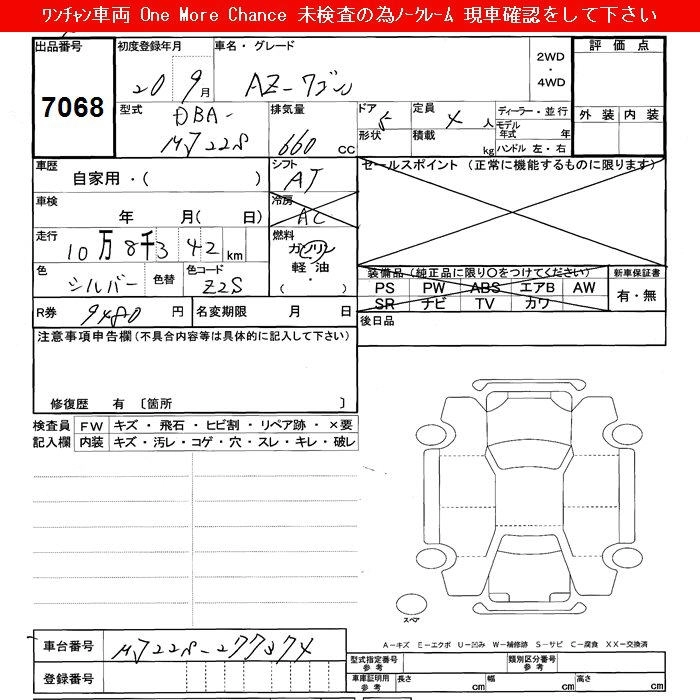 ﾜﾝﾁｬﾝ車両 One More Chance 未検査の為ﾉｰｸﾚｰﾑ 現車確認をして下さい
出品番号 初度登録年月 車名・グレード 2WD ・ 4WD 評価点
7068 20 9月 AZ-ワゴン
型式 DBA- MJ22S 排気量 660 cc ドア 5 形状 定員 4 人 積載 kg ディーラー・並行 モデル年式 年 ハンドル 左・右 外装 内装
車歴 自家用・( ) シフト AT セールスポイント (正常に機能するものに限ります)
車検 年 月( 日) 冷房 AC
走行 10万8千342km 燃料 ガソリン 軽油・ ( )
色 シルバー 色替 色コード Z2S 装備品(純正品に限り○をつけてください) 新車保証書
PS PW ABS エアB AW 有・無
SR ナビ TV カワ
R券 9480 円 名変期限 月 日 後日品
注意事項申告欄(不具合内容等は具体的に記入して下さい)
修復歴 有 〔箇所 〕
検査員 FW キズ・飛石・ヒビ割・リペア跡・×要
記入欄 内装 キズ・汚レ・コゲ・穴・スレ・キレ・破レ
スペア
A－キズ E－エクボ U－凹み W－補修跡 S－サビ C－腐食 XX－交換済
車台番号 MJ22S-277374
型式指定番号 参考 類別区分番号 参考
登録番号 車庫証明用 参考 長さ cm 幅 cm 高さ cm